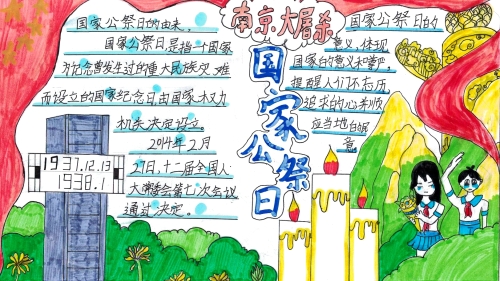 国家公祭日的由来。
国家公祭日是指一个国家
为纪念曾发生过的重大民族灾难
而设立的国家纪念日由国家权力
机关决定设立。
2014年2月
27日,十二届全国人
大常委会第七次会议
通过决定。
1937.12.13
1938.1
南京大屠杀
国家公祭日
国家公祭日的
意义,体现
国家的意义和
提醒人们不忘历
追求的心来顺
应当地